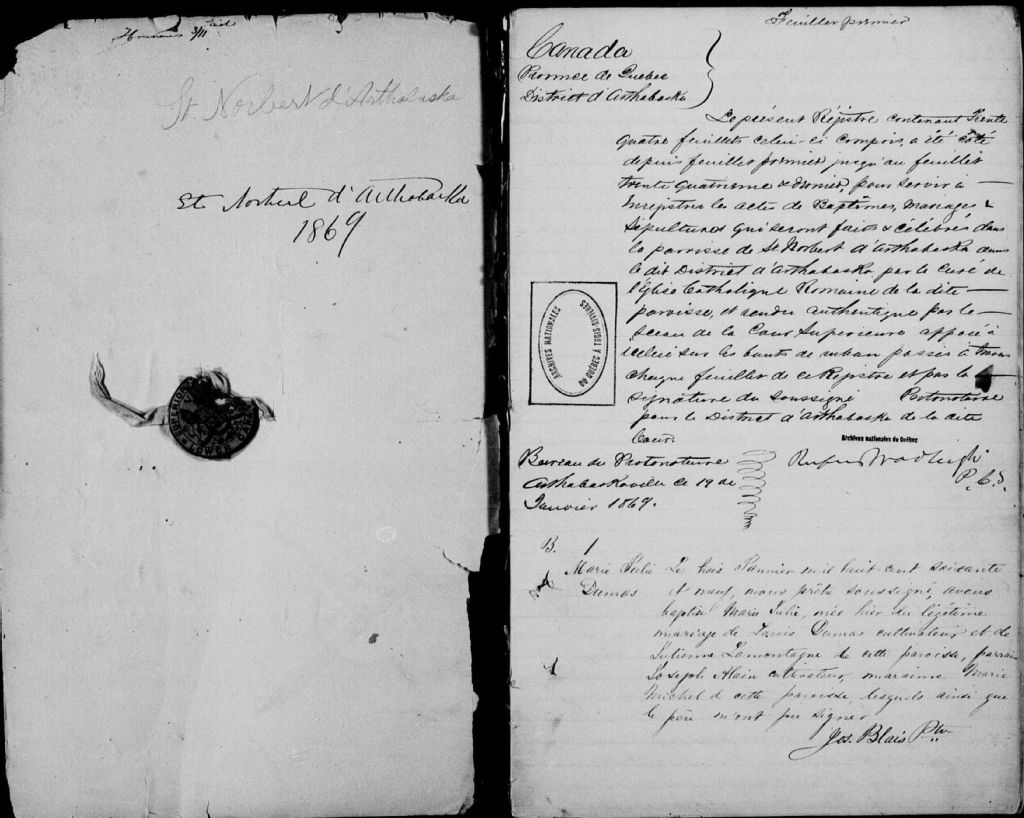 St. Norbert d'Arthabaska
St Norbert d'Arthabaska
1869
SUPERIOR
LOWER CANADA
Feuillet premier
Canada
Province de Quebec
District d'Arthabaska
Le présent Régistre contenant Trente
quatre feuillets celui-ci compris, a été coté
depuis feuillet premier jusqu'au feuillet
trente quatrieme & dernier, pour servir à
enregistrer les actes de Baptêmes, Mariages &
Sépultures qui seront faits & célébrés dans
la paroisse de St Norbert d'Arthabaska dans
le dit District d'Arthabaska par le Curé de
l'Eglise Catholique Romaine de la dite
paroisse, et rendu authentique par le
Sceau de la Cour Superieure apposé à
icelui sur les bouts de ruban passés à travers
chaque feuillet de ce Régistre et par la
Signature du soussigné Protonotaire
pour le District d'Arthabaska de la dite
Cour.
ARCHIVES NATIONALES
DU QUÉBEC À TROIS-RIVIÈRES
Archives nationales du Québec
Bureau du Protonotaire
Arthabaskaville ce 19 de
Janvier 1869.
Rufus Wadleigh
P. C. S.
B. 1
Marie Julie
Dumas
Le trois Janvier mil huit cent soixante
et neuf, nous prêtre soussigné, avons
baptisé Marie Julie, née hier du légitime
mariage de Dumas cultivateur et de
Lamontagne de cette paroisse, parrain
Joseph Alain cultivateur, marraine Marie
Michel de cette paroisse, lesquels ainsi que
le père n'ont pu signer
Jos. Blais Ptre